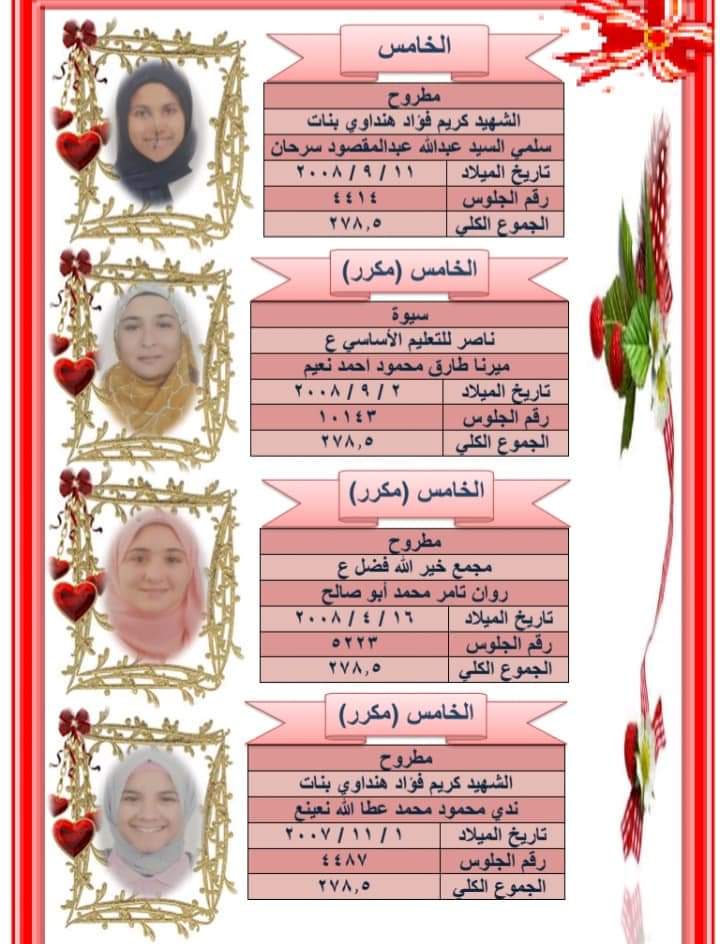 الخامس
مطروح
الشهيد كريم فؤاد هنداوي بنات
سلمي السيد عبدالله عبدالمقصود سرحان
تاريخ الميلاد ١١ / ٩ / ٢٠٠٨
رقم الجلوس ٤٤١٤
الجموع الكلي ٢٧٨,٥
الخامس (مكرر)
سيوة
ناصر للتعليم الأساسي ع
ميرنا طارق محمود احمد نعيم
تاريخ الميلاد ٢ / ٩ / ٢٠٠٨
رقم الجلوس ١٠١٤٣
الجموع الكلي ٢٧٨,٥
الخامس (مكرر)
مطروح
مجمع خير الله فضل ع
روان تامر محمد أبو صالح
تاريخ الميلاد ١٦ / ٤ / ٢٠٠٨
رقم الجلوس ٥٢٢٣
الجموع الكلي ٢٧٨,٥
الخامس (مكرر)
مطروح
الشهيد كريم فؤاد هنداوي بنات
ندي محمود محمد عطا الله نعينع
تاريخ الميلاد ١ / ١١ / ٢٠٠٧
رقم الجلوس ٤٤٨٧
الجموع الكلي ٢٧٨,٥